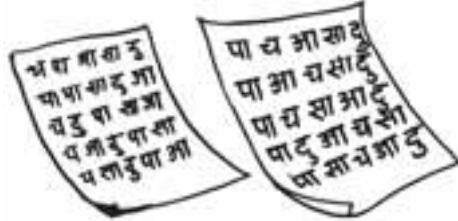 सा दु
पा सा दु आ
च दु पा आ
च आ दु पा सा
सा दु पा आ
पा च आ सा दु
पा आ च सा दु
पा च सा आ दु
पा दु आ च सा
पा सा च आ दु